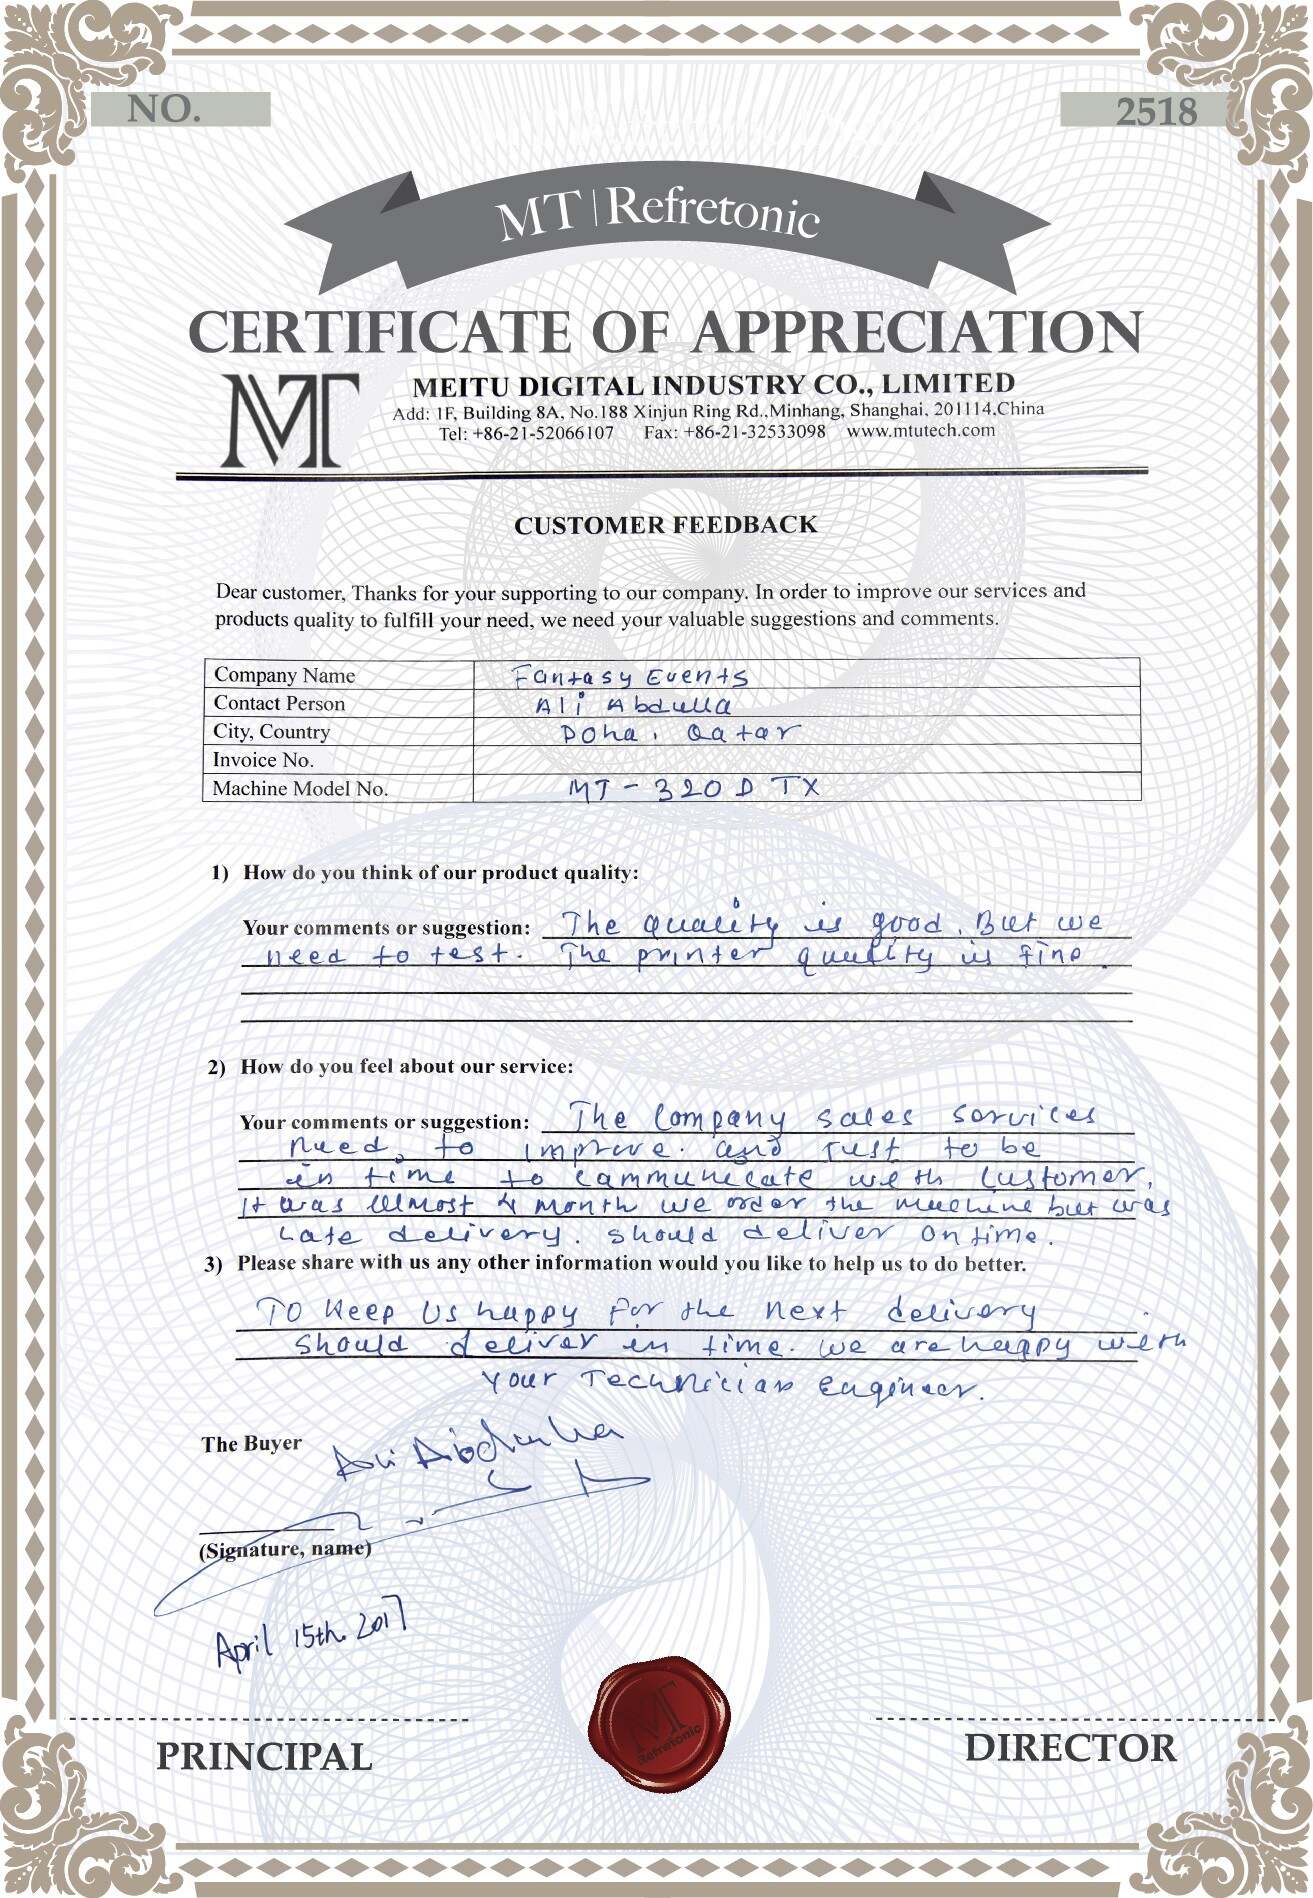 NO.
2518
MT | Refretonic
CERTIFICATE OF APPRECIATION
MT
MEITU DIGITAL INDUSTRY CO., LIMITED
Add: 1F, Building 8A, No.188 Xinjun Ring Rd.,Minhang, Shanghai, 201114,China
Tel: +86-21-52066107 Fax: +86-21-32533098 www.mtutech.com
CUSTOMER FEEDBACK
Dear customer, Thanks for your supporting to our company. In order to improve our services and
products quality to fulfill your need, we need your valuable suggestions and comments.
Company Name Fantasy Events
Contact Person Ali Abdulla
City, Country Doha, Qatar
Invoice No.
Machine Model No. MT-320D TX
1) How do you think of our product quality:
Your comments or suggestion: The quality is good. But we
need to test. The printer quality is fine.
2) How do you feel about our service:
Your comments or suggestion: The Company sales sorvices
need to improve. and to be
in time to cammunicate with Customer,
It was almost 4 month we order the machine but was
Late delivery. should deliver on time.
3) Please share with us any other information would you like to help us to do better.
To Keep Us happy for the next delivery
should deliver in time. we are happy with
your Technician Engineer.
The Buyer Ali Abdulla
(Signature, name)
April 15th. 2017
MT
Refretonic
PRINCIPAL
DIRECTOR